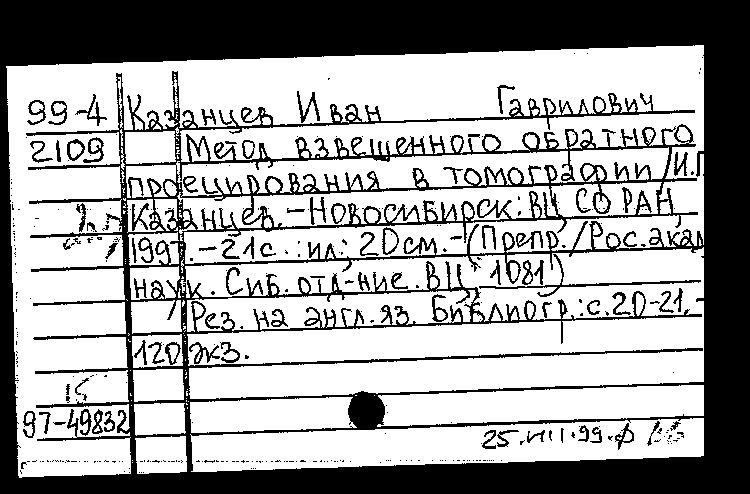 99-4 Казанцев Иван Гаврилович
2109 Метод взвешенного обратного
проецирования в томографии / И.Г
Казанцев. - Новосибирск: ВЦ СО РАН,
1997. - 21с. : ил; 20см. - (Препр. / Рос. акад
наук. Сиб. отд-ние. ВЦ; 1081)
Рез. на англ. яз. Библиогр.: с. 20-21. -
120 экз.
15
97-49832
25.VIII.99.ф